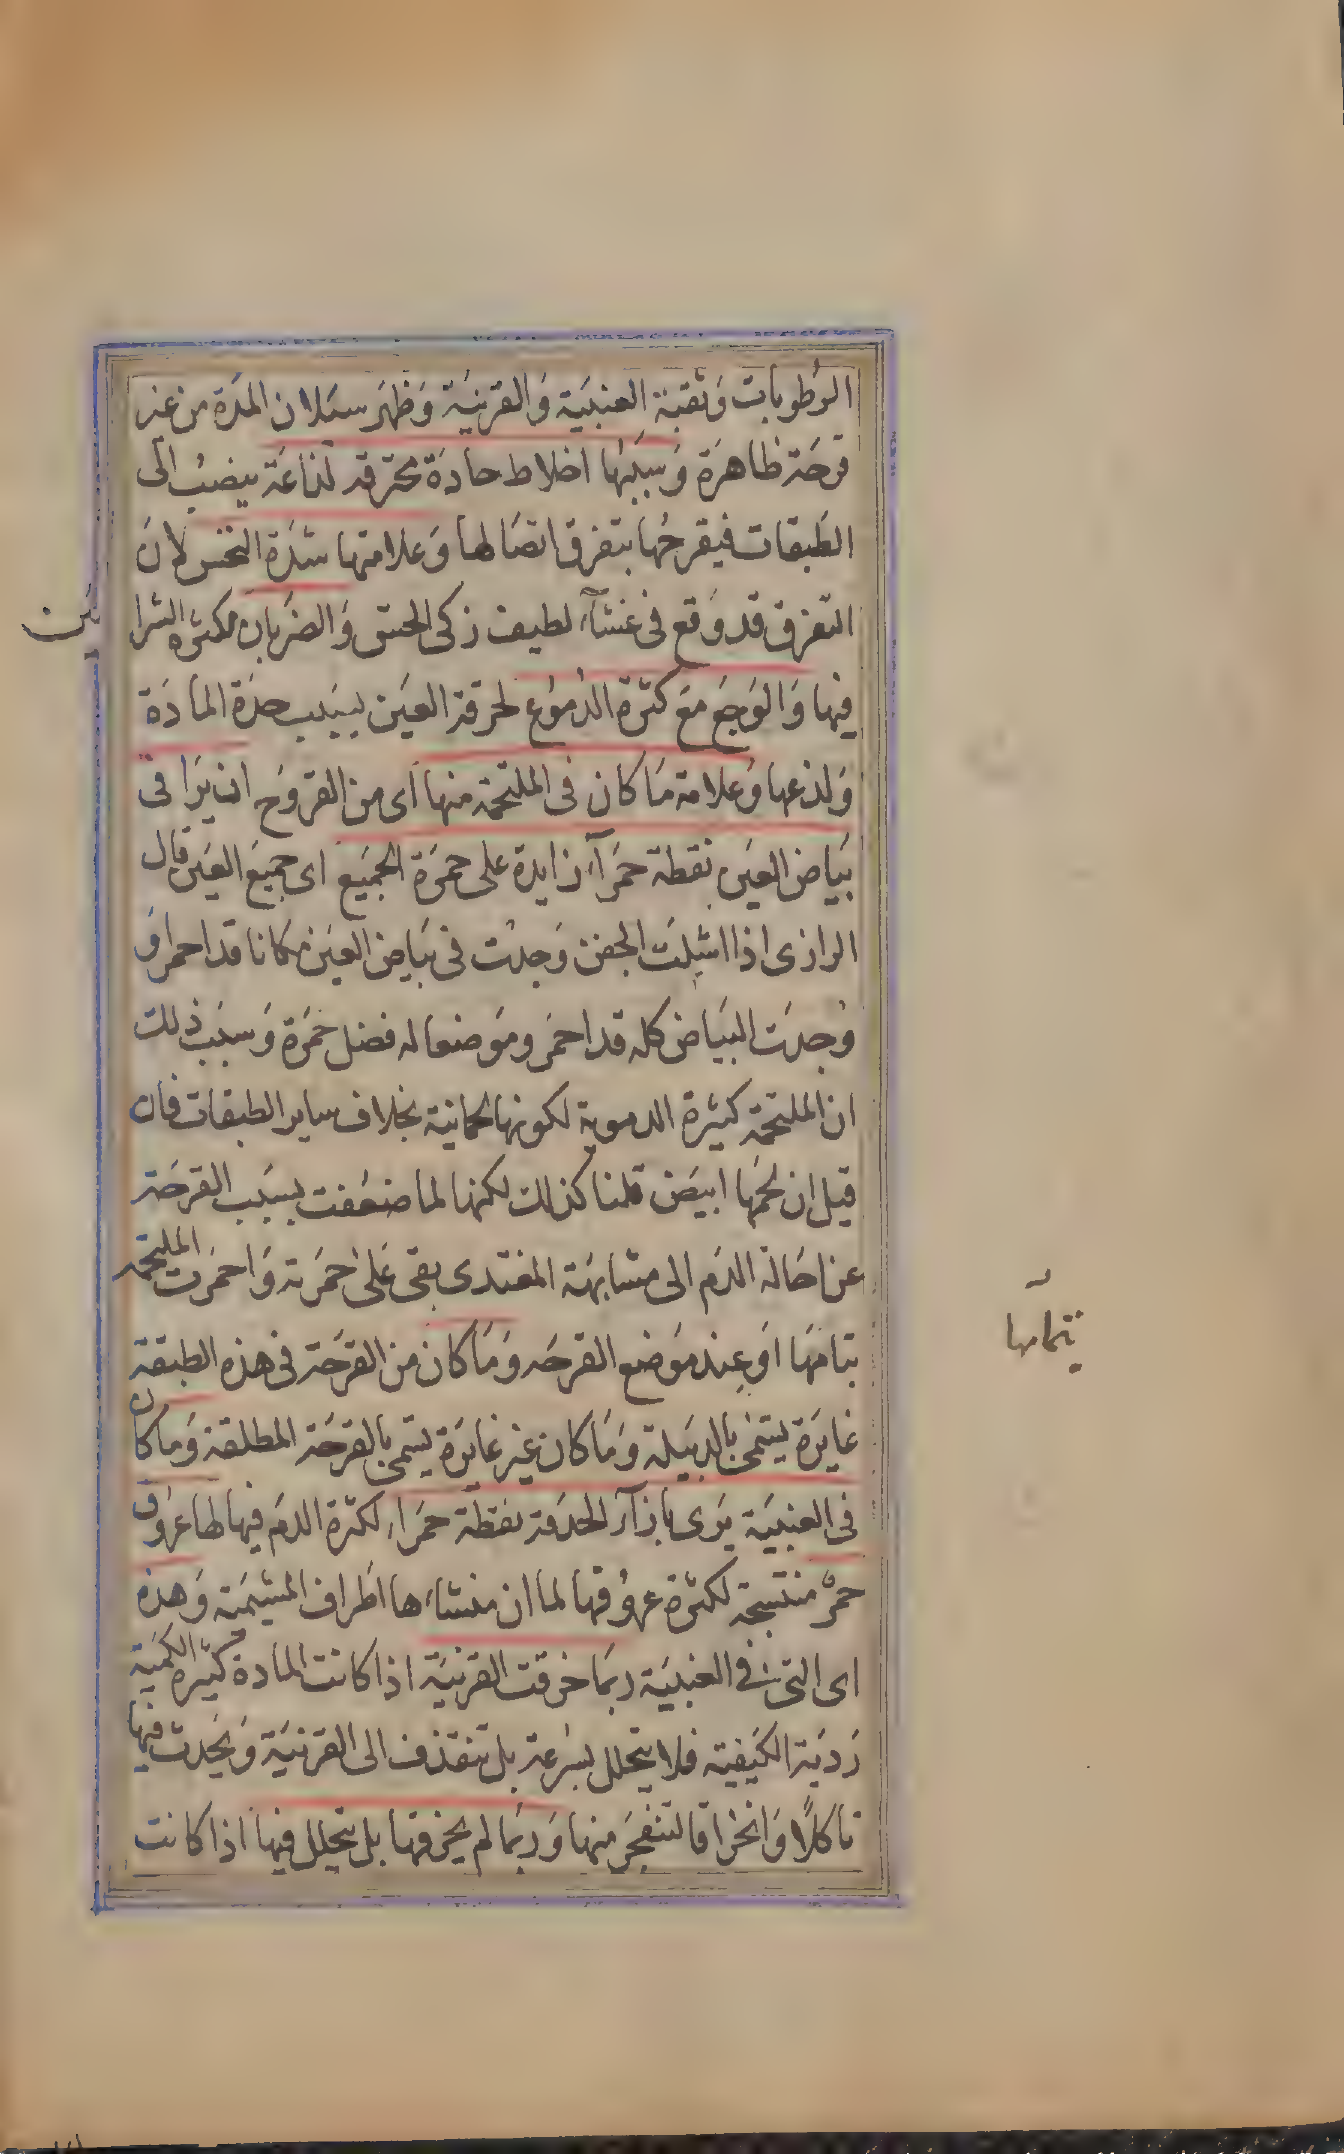 الرطوبات وثقبة العنبية والقرنية وظهر سيلان المدة من غير
قرحة ظاهرة وسببها اخلاط حادة محترقه لذاعة ينصب الى
الطبقات فيقرحها بتفرق اتصالها وعلامتها شدة النخس لان
التفرق قد وقع فى غشآء لطيف زكى الحس والضربان لكثرة الشرا
ئين
فيها والوجع مع كثرة الدموع لحرقة العين بسبب حدة المادة
ولذعها وعلامة ما كان فى الملتحمة منها اى من القروح ان يرا فى
بياض العين نقطة حمرآء زايدة على حمرة الجميع اى جميع العين قال
الرازى اذا اشيلت الجفن وجدت فى بياض العين مكانا قد احمر او
وجدت البياض كله قد احمر وموضعا له فضل حمرة وسبب ذلك
ان الملتحمة كثيرة الدموية لكونها لحمانية بخلاف ساير الطبقات فان
قيل ان لحمها ابيض قلنا كذلك لكنها لما ضعفت بسبب القرحة
عن احالة الدم الى مشابهة المغتدى بقى على حمرته واحمرت الملتحمة
بتامها او عند موضع القرحه وما كان من القرحة فى هذه الطبقة
بتمامها
غايرة يسمى بالدبيلة وما كان غير غايرة يسمى بالقرحة المطلقة وما كان
فى العنبية يرى بازآء الحدقة نقطة حمراء لكثرة الدم فيها لها عروق
حمر منتسجة لكثرة عروقها لما ان منشاءها اطراف المشيمة وهذه
اى التى فى العنبية ربما خرقت القرنية اذا كانت المادة كثيرة الكمية
ردية الكيفية فلا يتحلل بسرعة بل تنقذف الى القرنية ويحدث فيها
تاكلا وانخراقا لتنفجر منها وربما لم يخرقها بل يتحلل فيها اذا كانت